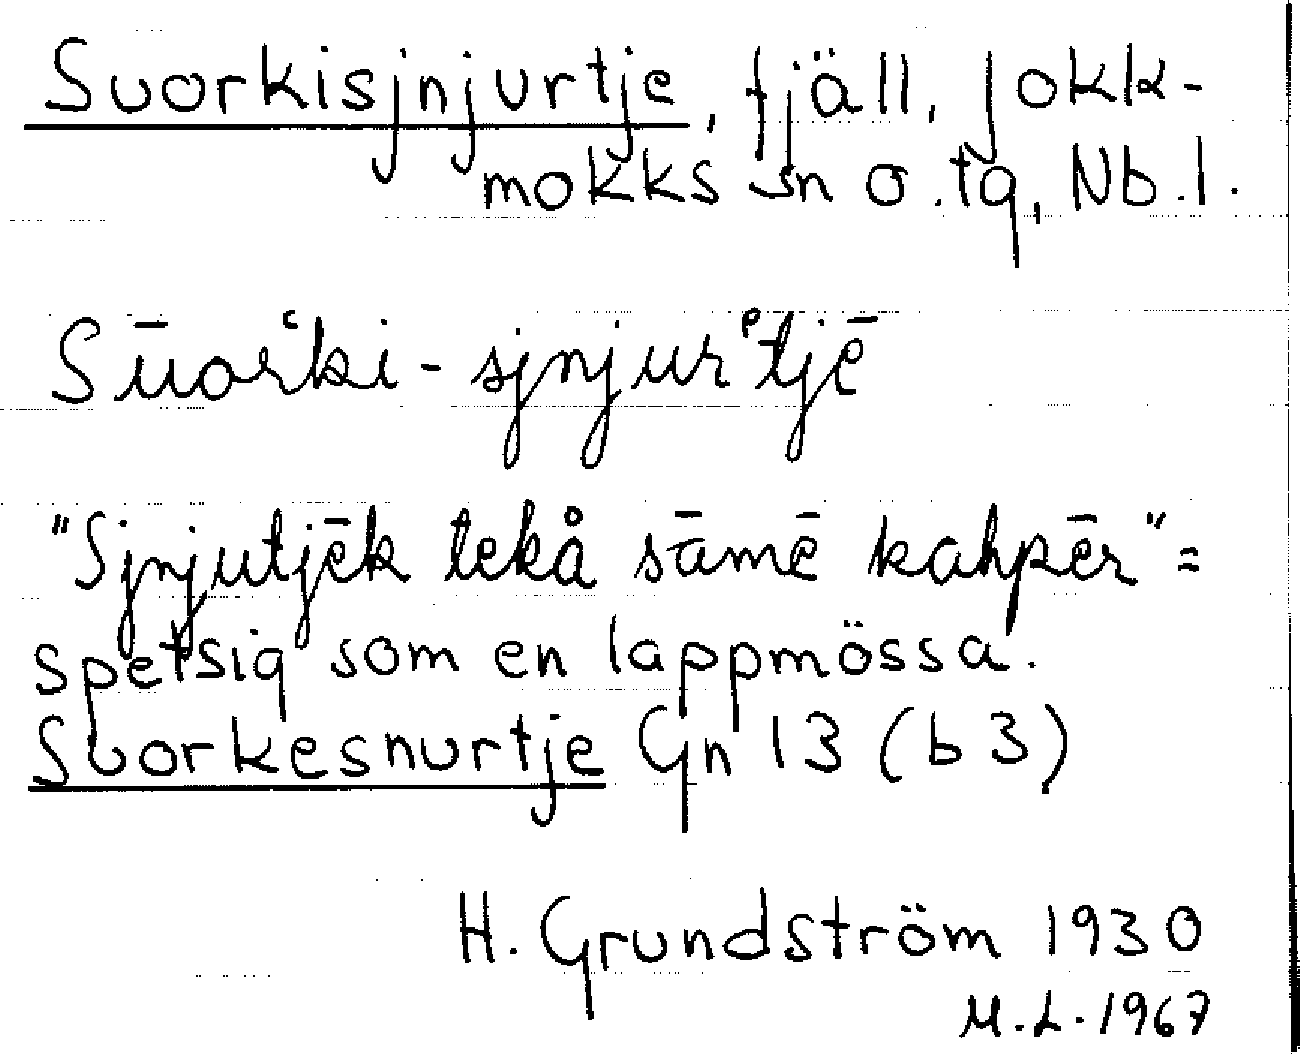 Suorkisjnjurtje, fjäll, Jokk-
mokks sn o. tg, Nb. l.
Sūorʿki-sjnjurᵉtjē
"Sjnjutjēk tekå sāmē kahpēr" =
spetsig som en lappmössa.
Suorkesnurtje Gn 13 (b 3)
H. Grundström 1930
M. L. 1967